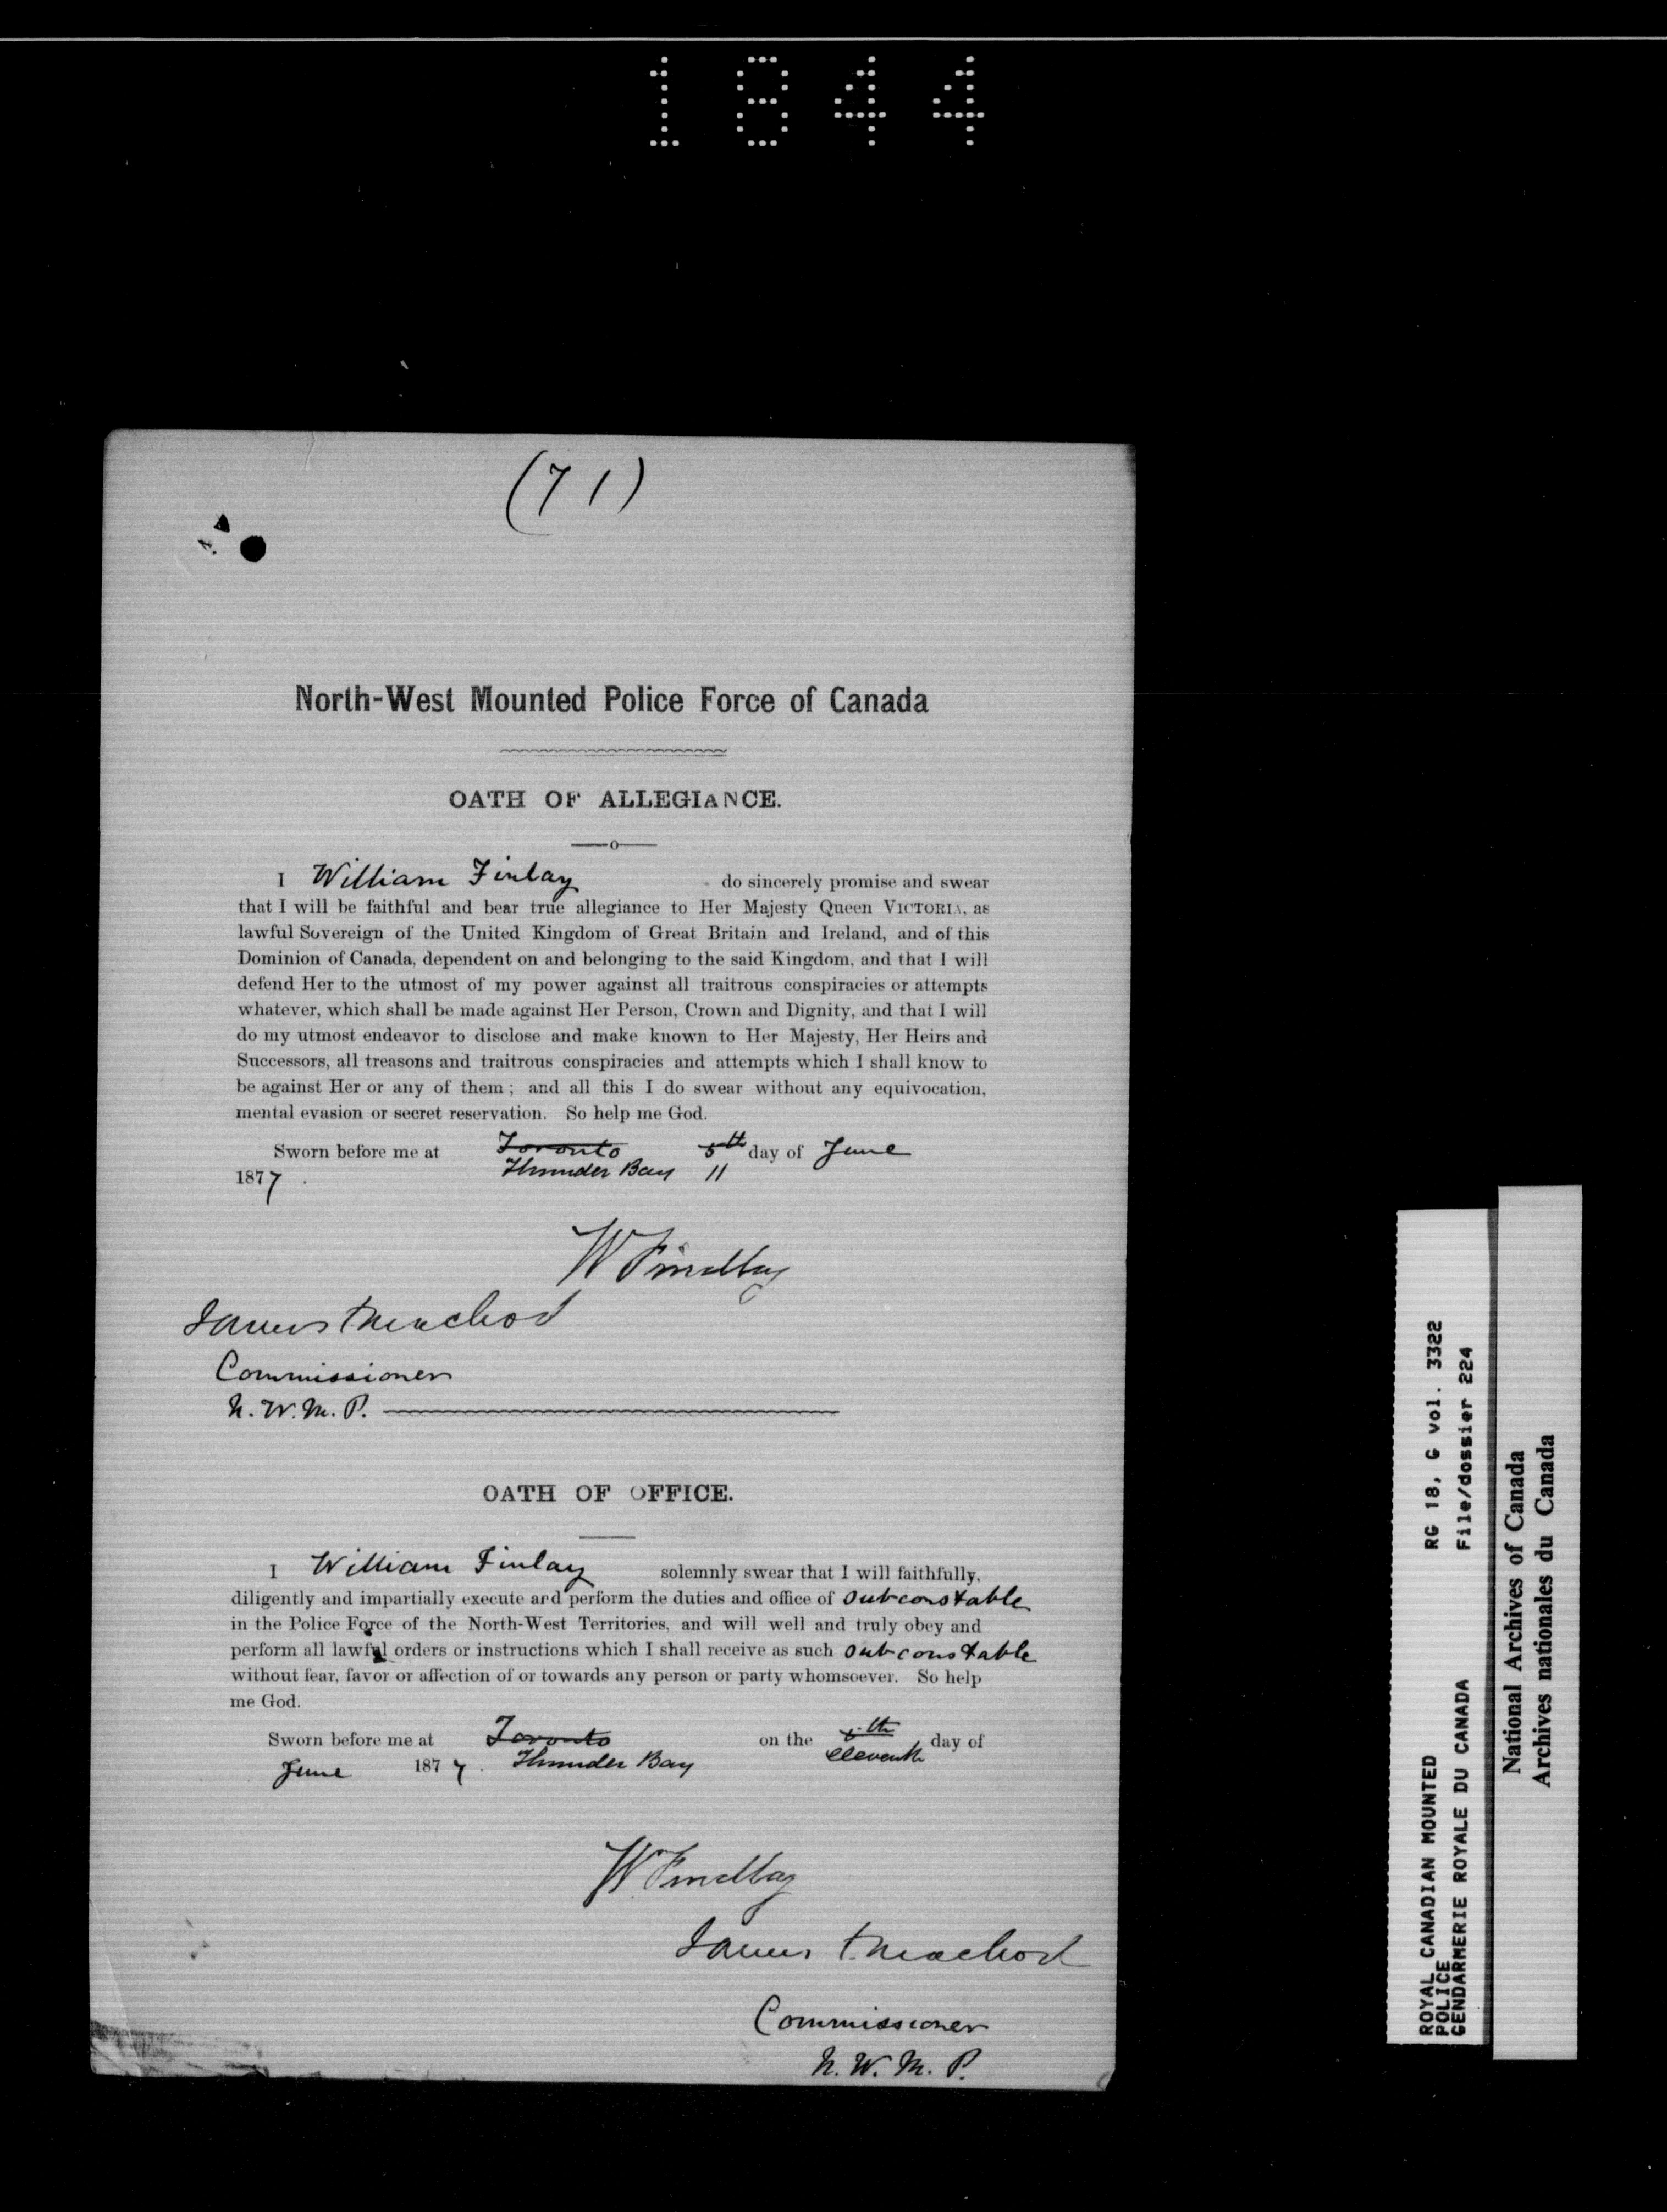 1844
(71)
North-West Mounted Police Force of Canada
OATH OF ALLEGIANCE.
I William Finlay do sincerely promise and swear
that I will be faithful and bear true allegiance to Her Majesty Queen VICTORIA, as
lawful Sovereign of the United Kingdom of Great Britain and Ireland, and of this
Dominion of Canada, dependent on and belonging to the said Kingdom, and that I will
defend Her to the utmost of my power against all traitrous conspiracies or attempts
whatever, which shall be made against Her Person, Crown and Dignity, and that I will
do my utmost endeavor to disclose and make known to Her Majesty, Her Heirs and
Successors, all treasons and traitrous conspiracies and attempts which I shall know to
be against Her or any of them; and all this I do swear without any equivocation,
mental evasion or secret reservation. So help me God.
Sworn before me at Toronto 5th day of June
1877. Thunder Bay 11
W Findlay
James F. Macleod
Commissioner
N. W. M. P.
OATH OF OFFICE.
I William Finlay solemnly swear that I will faithfully,
diligently and impartially execute and perform the duties and office of Subconstable
in the Police Force of the North-West Territories, and will well and truly obey and
perform all lawful orders or instructions which I shall receive as such Subconstable
without fear, favor or affection of or towards any person or party whomsoever. So help
me God.
Sworn before me at Toronto on the 5th day of
June 1877. Thunder Bay eleventh
W Findlay
James F. Macleod
Commissioner
N. W. M. P.
ROYAL CANADIAN MOUNTED RG 18, G vol. 3322
POLICE
GENDARMERIE ROYALE DU CANADA File/dossier 224
National Archives of Canada
Archives nationales du Canada